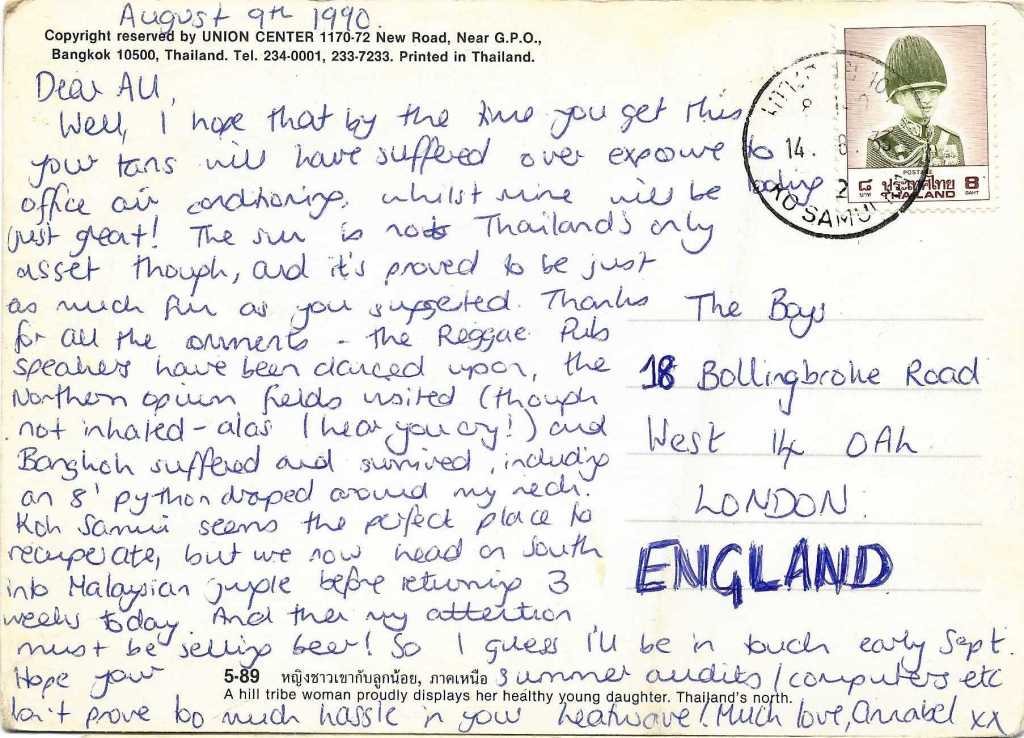 August 9th 1990.
Copyright reserved by UNION CENTER 1170-72 New Road, Near G.P.O.,
Bangkok 10500, Thailand. Tel. 234-0001, 233-7233. Printed in Thailand.
Dear All,
Well, I hope that by the time you get this
your tans will have suffered over exposure to
office air conditioning, whilst mine will be looking
just great! The sun is not Thailand's only
asset though, and it's proved to be just
as much fun as you suggested. Thanks
for all the comments - the Reggae Pub
speakers have been danced upon, the
Northern opium fields visited (though
not inhaled - alas I hear you cry!) and
Bangkok suffered and survived, including
an 8' python draped around my neck.
Koh Samui seems the perfect place to
recuperate, but we now head on South
into Malaysian jungle before returning 3
weeks today. And then my attention
must be selling beer! So I guess I'll be in touch early Sept.
Hope your summer audits/computers etc
don't prove too much hassle in your heatwave! Much love, Annabel xx
5-89 หญิงชาวเขากับลูกน้อย, ภาคเหนือ
A hill tribe woman proudly displays her healthy young daughter. Thailand's north.
The Boys
18 Bollingbroke Road
West 14 0AH
LONDON.
ENGLAND
14. 8. 33
2
KO SAMUI
POSTAGE
๘ บาท ประเทศไทย 8 BAHT
THAILAND